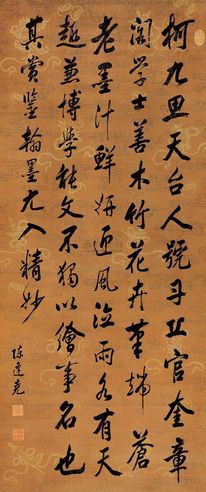 柯九思天台人號丹丘官奎章
閣學士善木竹花卉筆端蒼
老墨汁鮮妍迎風泣雨各有天
趣兼博學能文不獨以繪事名也
其賞鑒翰墨尤入精妙
陳邁